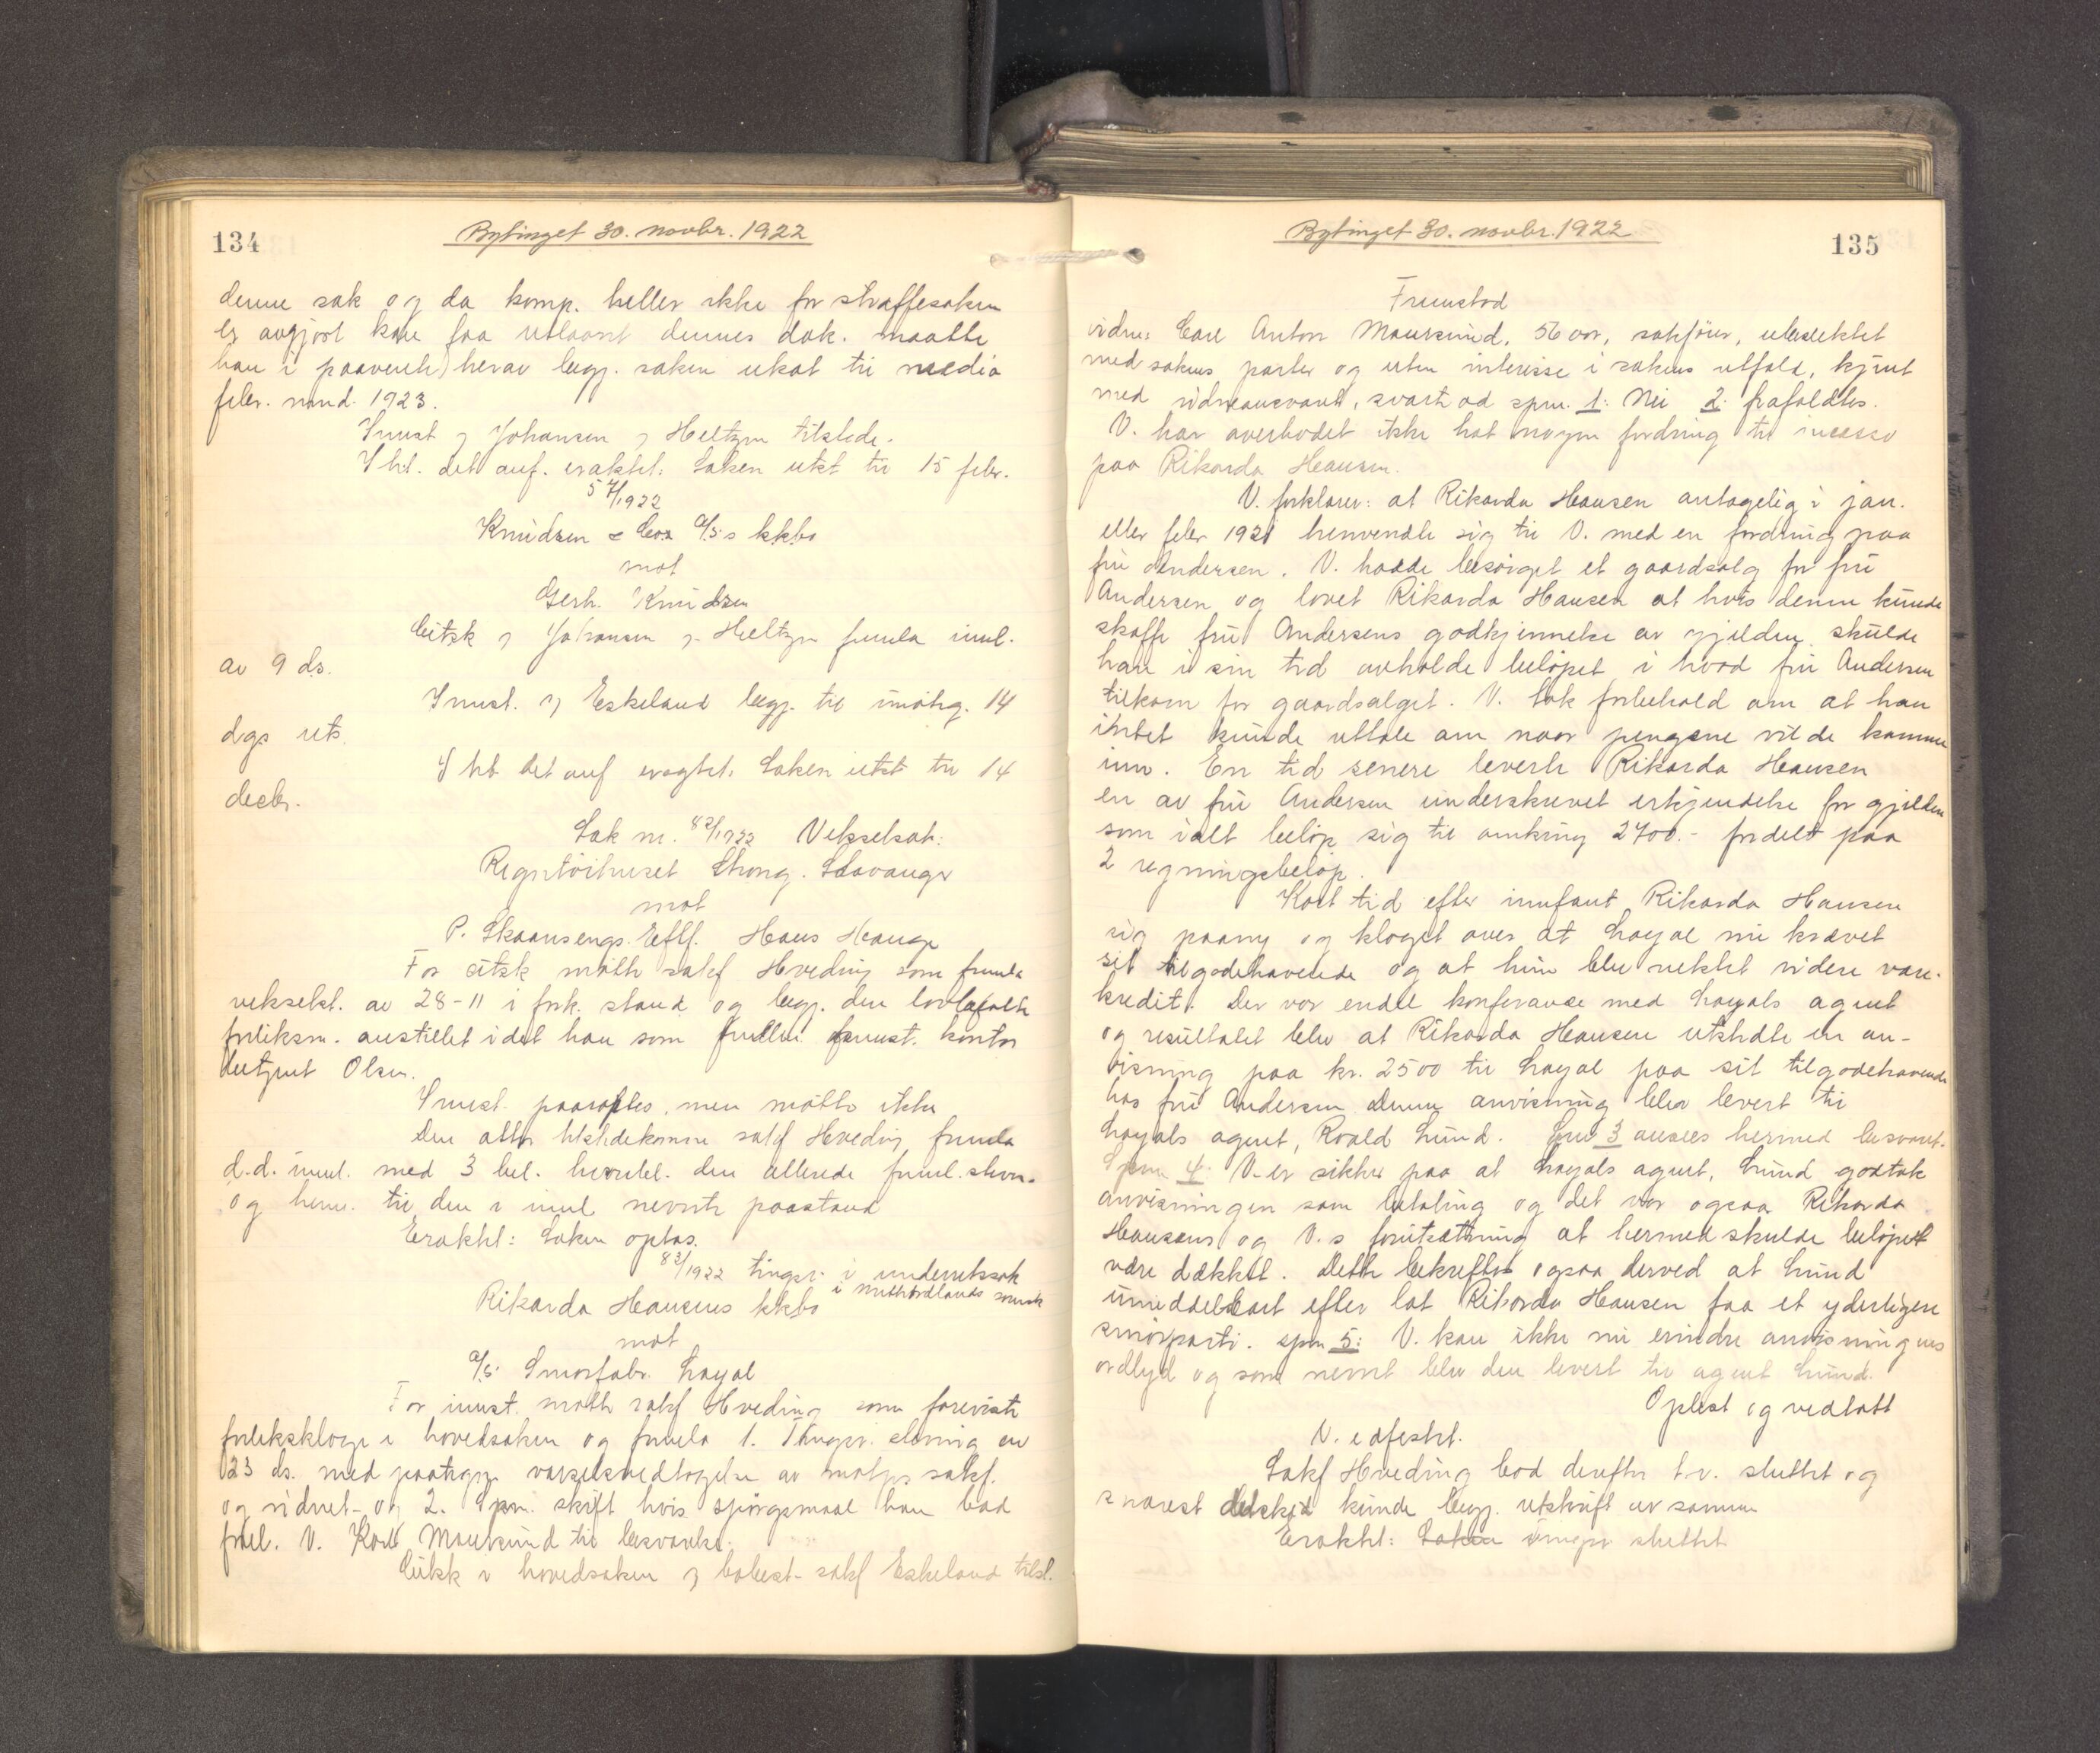 134
Bytinget 30. novbr. 1922
denne sak og da komp. heller ikke for straffesaken
er avgjort kan faa utlaant dennes dok. maatte
han i paavente herav begj. saken utsat til media
febr. mnd. 1923.
Inust v Johansen v Heltzen tilstede.
I ht. det anf. eraktet: Saken utst til 15 febr.
57/1922
Knudsen & Co.s A/S's kkbo
mot
Gerh. Knudsen
Citsk v Johansen v Heltzen fremla innl.
av 9 ds.
Inust. v Eskeland begj. til imøtg. 14
dgs uts.
I ht det anf eragtet: Saken utst til 14
decbr.
Sak nr. 82/1922 Vekselsak:
Regntöihuset Strong. Stavanger
mot
P. Skaansengs. Eftf. Hans Hauge
For citsk møtte sakf Hveding som fremla
vekselst. av 28-11 i fork. stand og begj. den lovbefalte
forliksm. anstillet idet han som fuldm. fremst. kontor
betjent Olsen.
Inust. paaroptes, men møtte ikke
Den atter tilstedekomne sakf Hveding fremla
d.d. innl. med 3 bil. herunder den allerede freml. stevn.
og henv. til den i innl nevnte paastand
Eraktet: Saken optas.
83/1922 tingsv. i underretssak
i midthordlands sorensk
Rikarda Hansens kkbo
mot
A/S: Smørfabr. Loyal
For inust. møtte sakf Hveding som foreviste
forliksklage i hovedsaken og fremla 1. Tingsv. stevning av
23 ds. med paategn. varselsvedtagelse av motp.s sakf.
og vidnet - og 2. Spm. skrift hvis spørgsmaal han bad
frel. V. Karl Maursund til besvarelse.
Citsk i hovedsaken v babest- sakf Eskeland tilst.
Bytinget 30. novbr. 1922
135
Fremstod
vidne: Carl Anton Maursund, 56 aar, sakfører, ubeslektet
med sakens parter og uten interesse i sakens utfald, kjent
med vidneansvaret, svarte ad spm. 1: Nei 2: frafaldtes.
V. har overhodet ikke hat nogen fordring til incasso
paa Rikarda Hansen.
V. forklarer: at Rikarda Hansen antagelig i jan.
eller febr 1921 henvendte sig til V. med en fordring paa
fru Andersen. V. hadde besørget et gaardsalg for fru
Andersen og lovet Rikarda Hansen at hvis denne kunde
skaffe fru Andersens godkjennelse av gjelden skulde
han i sin tid avholde beløpet i hvad fru Andersen
tilkom for gaardsalget. V. tok forbehold om at han
intet kunde uttale om naar pengene vilde komme
inn. En tid senere leverte Rikarda Hansen
en av fru Andersen underskrevet erkjendelse for gjelden
som ialt beløp sig til omkring 2700.- fordelt paa
2 regningsbeløp.
Kort tid efter innfant Rikarda Hansen
sig paany og klaget over at Loyal nu krævet
sit tilgodehavende og at hun blev nektet videre vare-
kredit. Der var endel konferanse med Loyals agent
og resultatet blev at Rikarda Hansen utstedte en an-
visning paa kr. 2500 til Loyal paa sit tilgodehavende
hos fru Andersen. Denne anvisning blev levert til
Loyals agent, Roald Lund. Spm 3 ansees hermed besvart.
Spm 4: V. er sikker paa at Loyals agent, Lund godtok
anvisningen som betaling og det var ogsaa Rikarda
Hansens og V.s forutsætning at hermed skulde beløpet
være dækket. Dette bekreftes ogsaa derved at Lund
umiddelbart efter lot Rikarda Hansen faa et yderligere
smørparti. spm 5: V. kan ikke nu erindre anvisningens
ordlyd og som nevnt blev den levert til agent Lund.
Oplest og vedtatt
V. edfestet.
Sakf Hveding bad derefter t.v. sluttet og
snarest det skje kunde begj. utskrift av samme
Eraktet: Saken tingsv sluttet